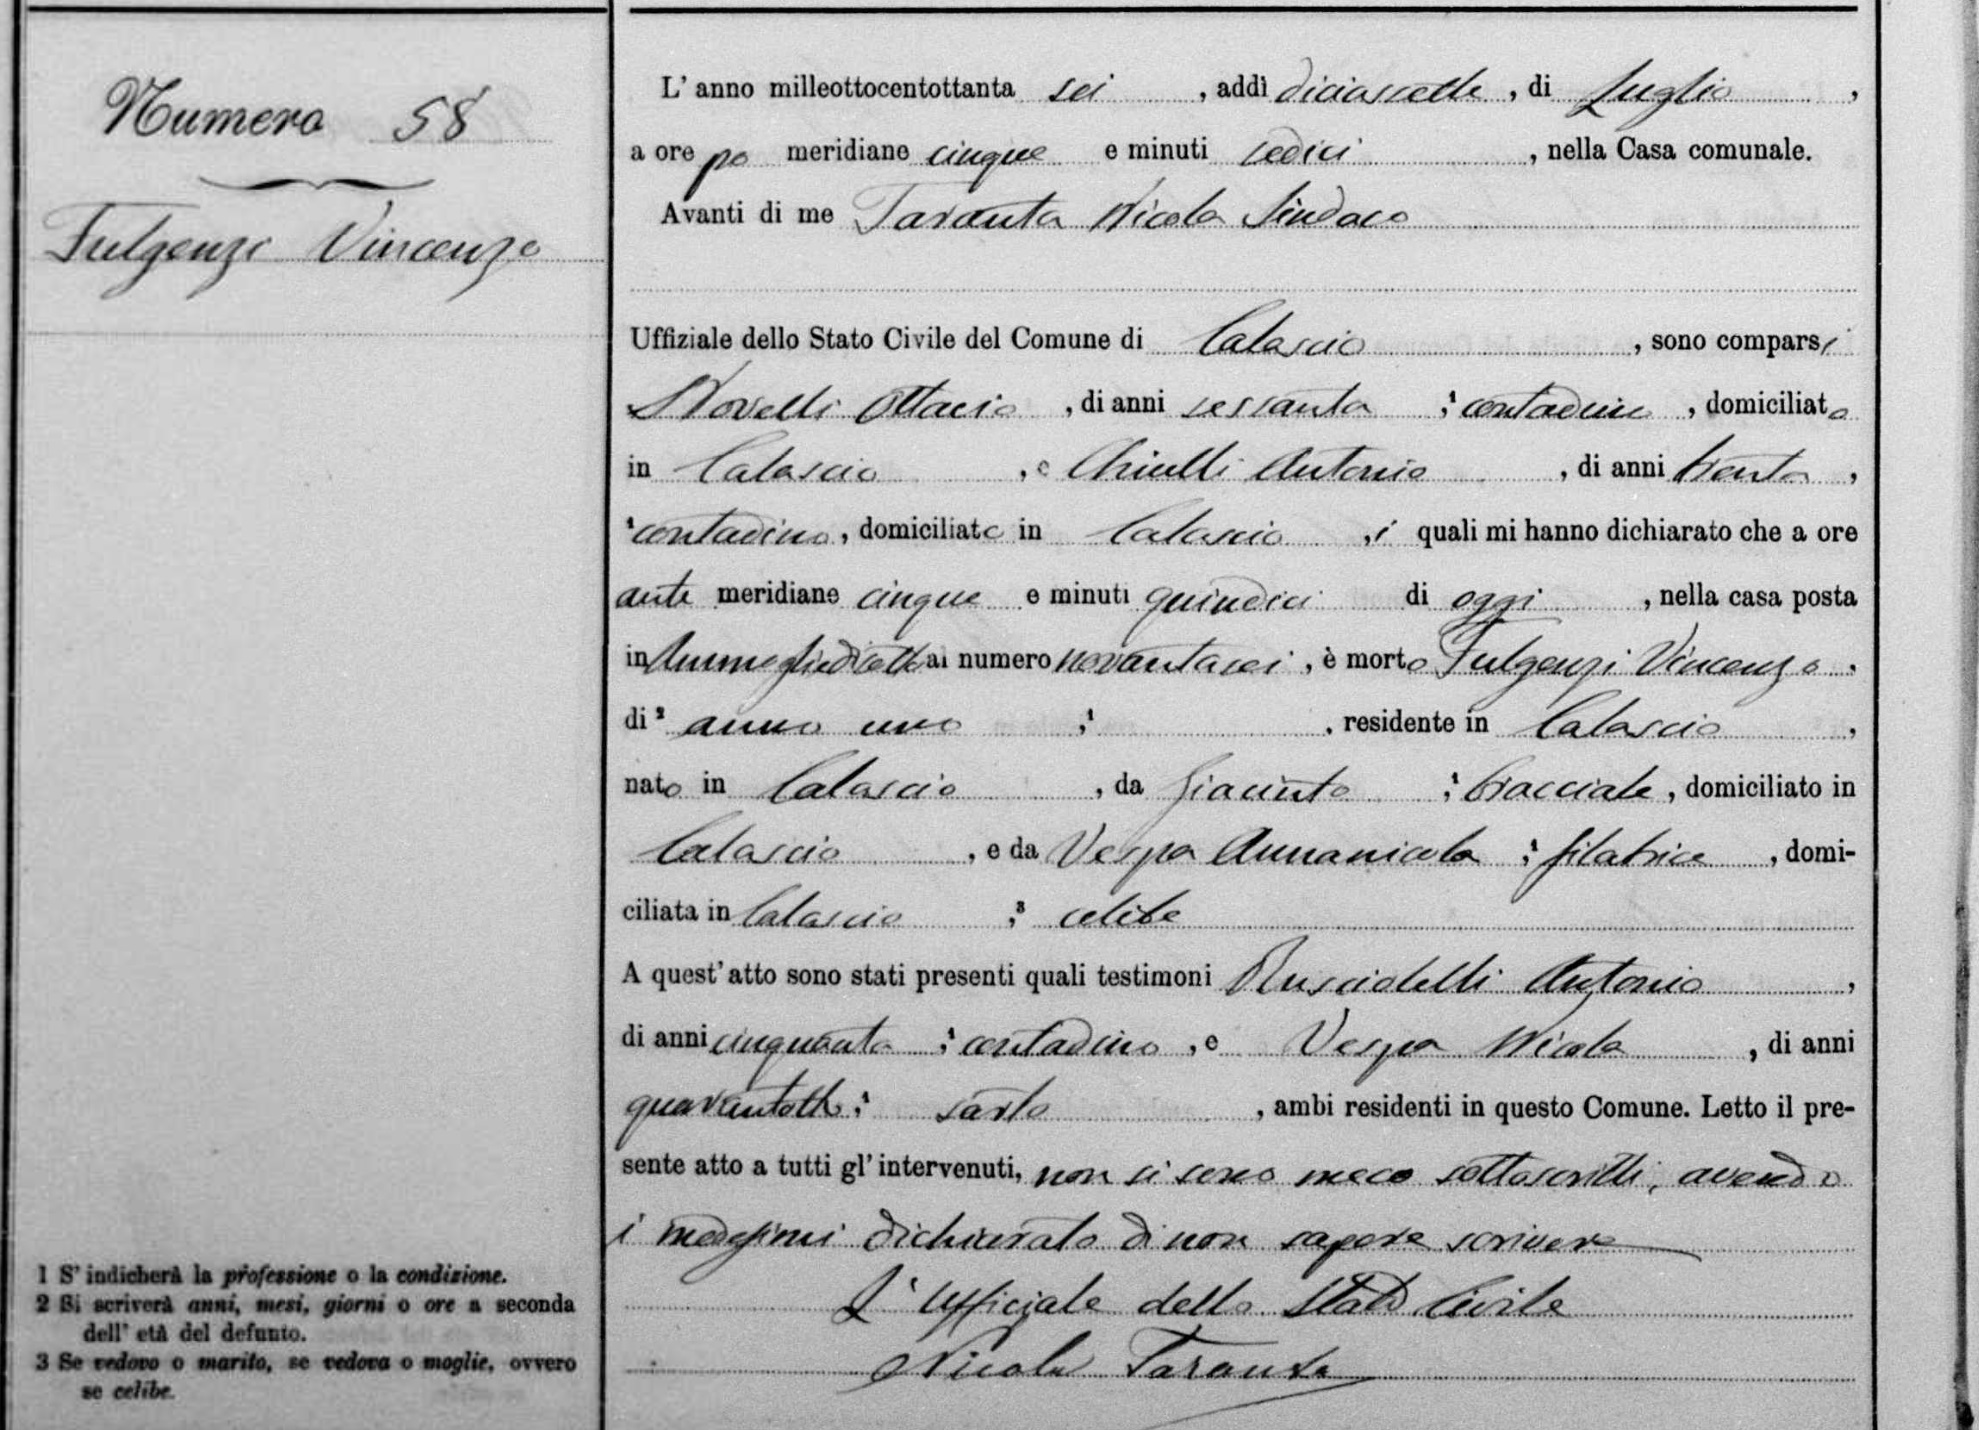 Numero 58
Fulgenzi Vincenzo
1 S' indicherà la professione o la condizione.
2 Si scriverà anni, mesi, giorni o ore a seconda
dell' età del defunto.
3 Se vedovo o marito, se vedova o moglie, ovvero
se celibe.
L' anno milleottocentottanta sei, addì diciassette, di Luglio,
a ore po meridiane cinque e minuti sedici, nella Casa comunale.
Avanti di me Taranta Nicola Sindaco
Uffiziale dello Stato Civile del Comune di Calascio, sono comparsi
Novelli Ottavio, di anni sessanta, ¹ contadino, domiciliato
in Calascio, e Chiulli Antonio, di anni trenta,
¹ contadino, domiciliato in Calascio, i quali mi hanno dichiarato che a ore
ante meridiane cinque e minuti quindici di oggi, nella casa posta
in al numero novantasei, è morto Fulgenzi Vincenzo,
di ² anno uno, ¹ , residente in Calascio,
nato in Calascio, da Giacinto, ¹ bracciale, domiciliato in
Calascio, e da Vespa Annanicola, ¹ filatrice, domi-
ciliata in Calascio, ³ celibe
A quest' atto sono stati presenti quali testimoni Rusciolelli Antonio,
di anni cinquanta, ¹ contadino, e Vespa Nicola, di anni
¹ sarto, ambi residenti in questo Comune. Letto il pre-
sente atto a tutti gl' intervenuti, non si sono meco sottoscritti, avendo
i medesimi dichiarato di non sapere scrivere
L' Ufficiale dello Stato Civile
Nicola Taranta